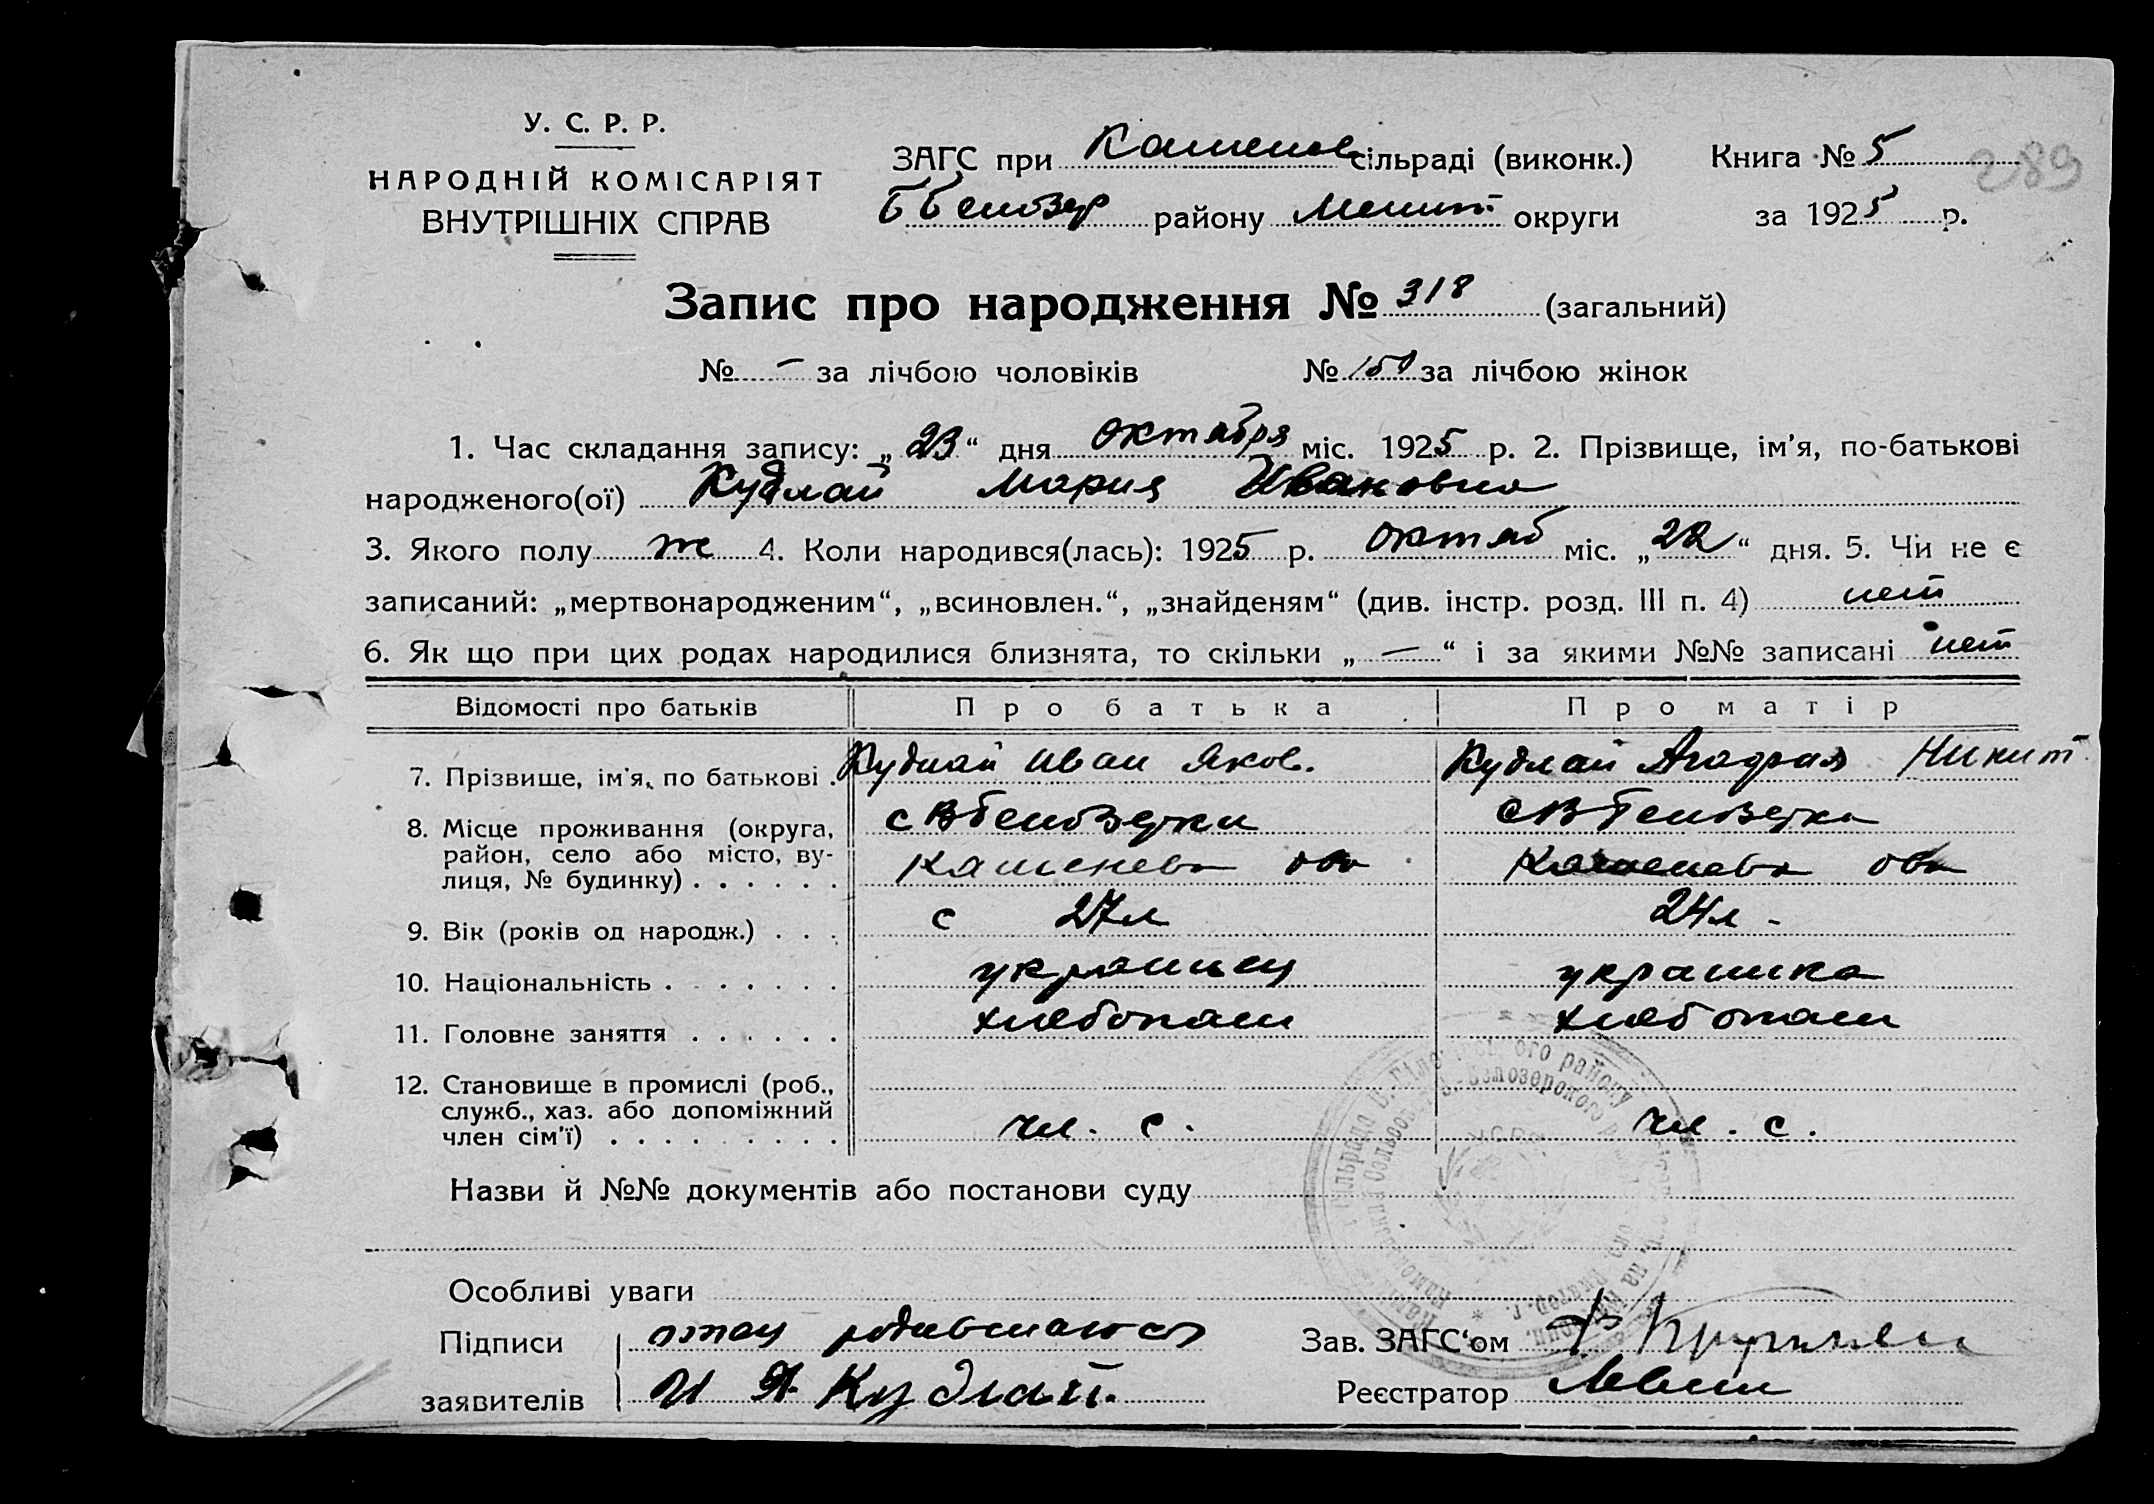 У. С. Р. Р.
НАРОДНІЙ КОМІСАРІЯТ
ВНУТРІШНІХ СПРАВ
ЗАГС при Каменов сільраді (виконк.)
Книга № 5
289
района району Мелит. округи
за 1925 р.
Запис про народження № 318 (загальний)
№ – за лічбою чоловіків № 150 за лічбою жінок
1. Час складання запису: „23“ дня октября міс. 1925 р. 2. Прізвище, ім'я, по-батькові
народженого(ої) Кудлай Мария Ивановна
3. Якого полу ж 4. Коли народився(лась): 1925 р. октяб міс. „22“ дня. 5. Чи не є
записаний: „мертвонародженим“, „всиновлен.“, „знайденям“ (див. інстр. розд. III п. 4) нет
6. Як що при цих родах народилися близнята, то скільки „ — “ і за якими №№ записані нет
Відомості про батьків Про батька Про матір
7. Прізвище, ім'я, по батькові . Кудлай Иван Яков. Кудлай Агафия Никит.
8. Місце проживання (округа,
район, село або місто, ву-
лиця, № будинку) . . . . . .
9. Вік (років од народж.) . . . 27л 24л -
10. Національність . . . . . . . украинец украинка
11. Головне заняття . . . . . . хлебопаш хлебопаш
12. Становище в промислі (роб.,
служб., хаз. або допоміжний
член сім'ї) . . . . . . . . . чл. с. чл. с.
Назви й №№ документів або постанови суду
Особливі уваги
Підписи отец родившагося
заявителів И Я Кудлай.
Зав. ЗАГС'ом
Реєстратор